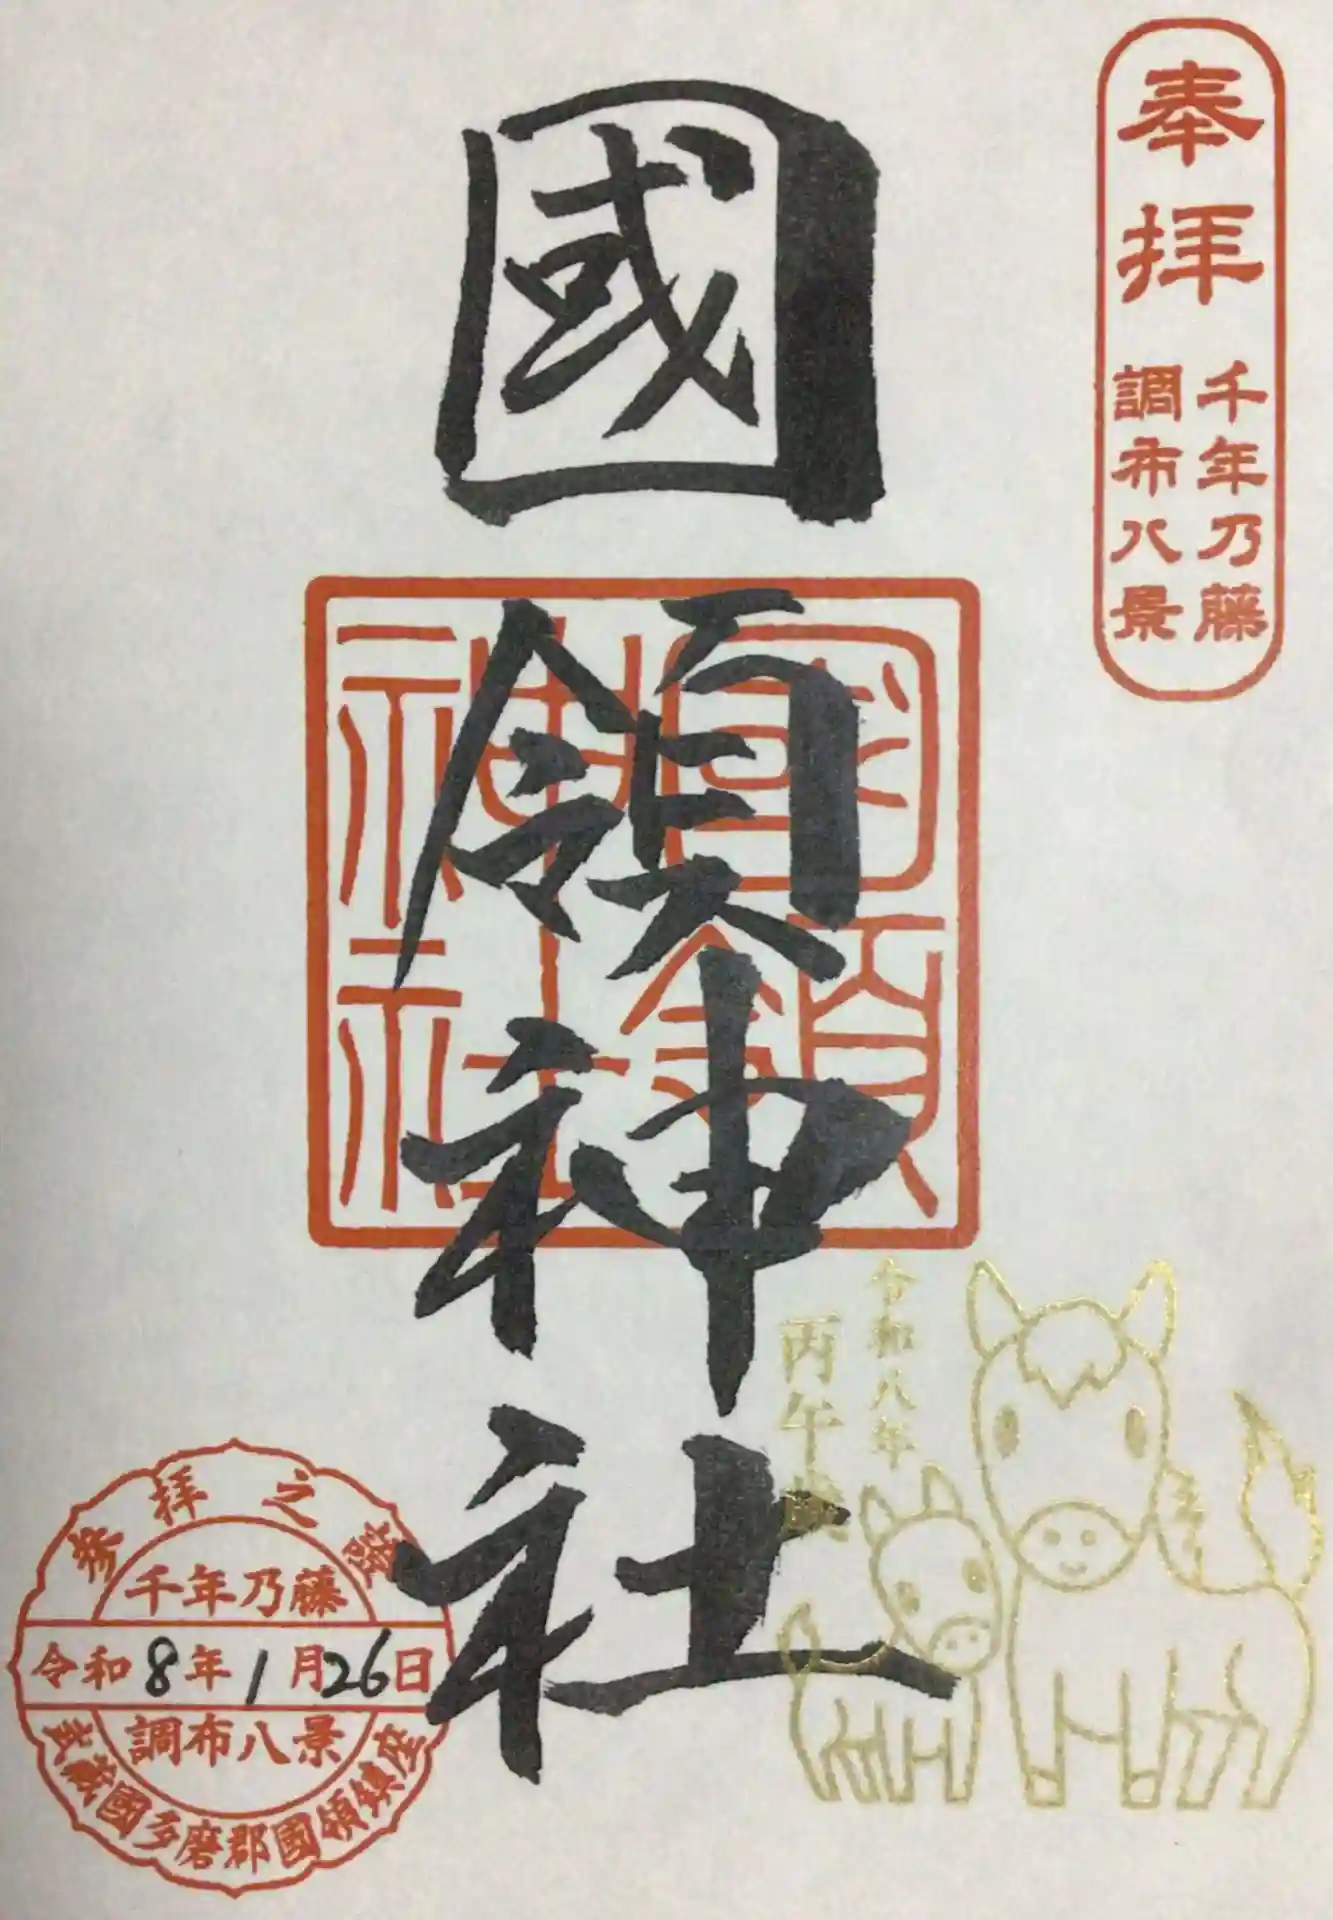 奉拝
千年乃藤
調布八景
國領神社
國領
神社
令和八年
丙午歳
参拝之証
千年乃藤
令和8年1月26日
調布八景
武蔵國多磨郡國領鎮座